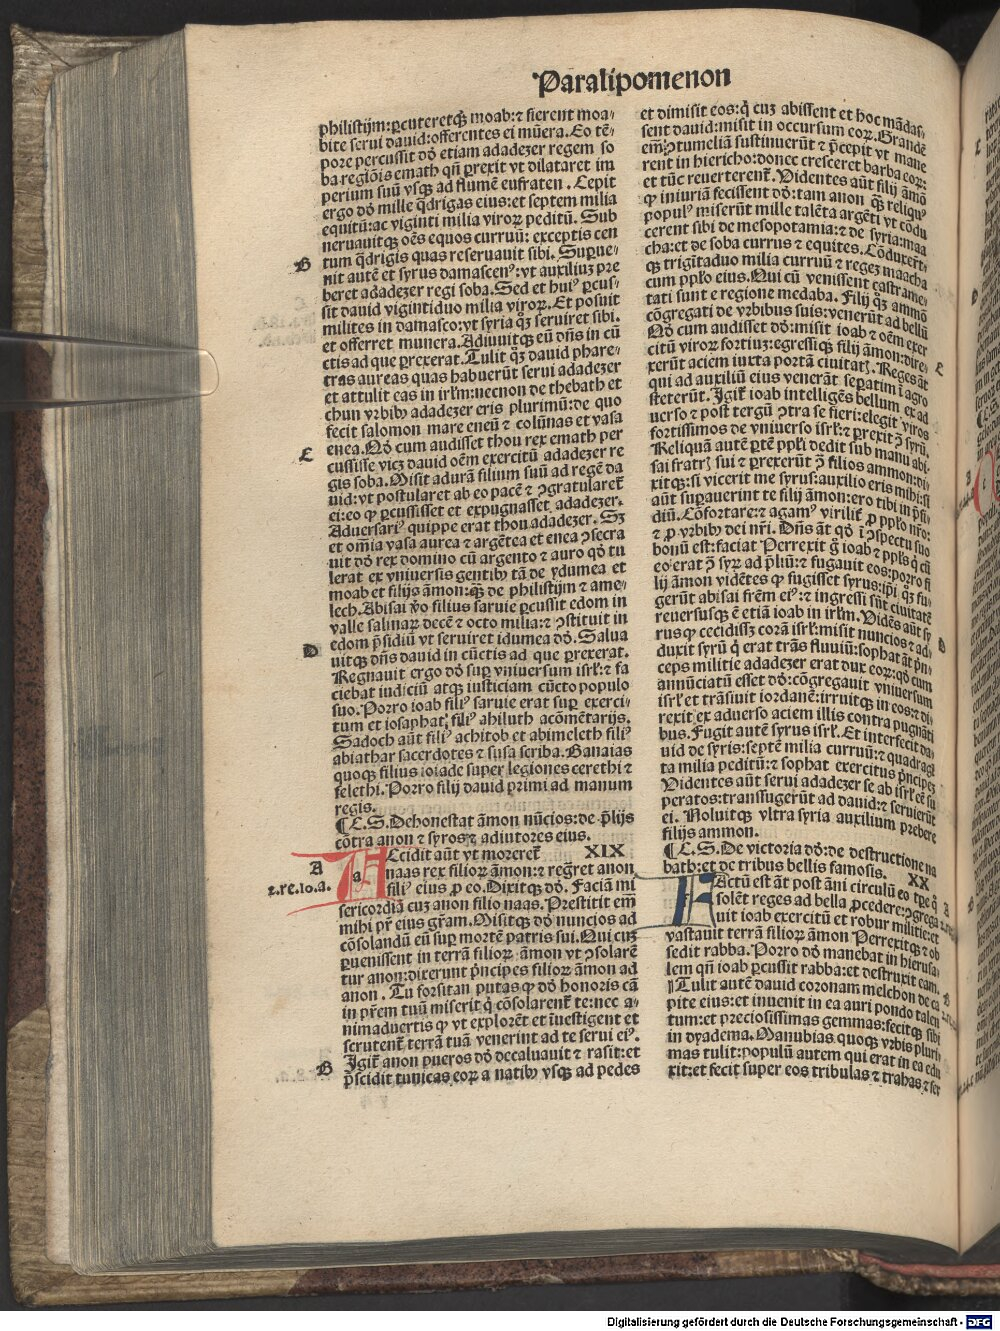 Paralipomenon
philistijm: ꝑcuteretqꝫ moab: ⁊ fierent moa⸗
bite serui dauid: offerentes ei mũera. Eo tẽ⸗
pore percussit dd̃ etiam adadezer regem so
ba regiõis emath qñ ꝑrexit vt dilataret im
perium suũ vsqꝫ ad flumẽ eufraten. Cepit
ergo dd̃ mille q̃drigas eius: et septem milia
equitũ: ac viginti milia viroꝝ peditũ. Sub
neruauitqꝫ oẽs equos curruũ: exceptis cen
B
tum q̃drigis quas reseruauit sibi. Suꝑue⸗
nit autẽ et syrus damascenꝰ: vt auxiliuꝫ pre
beret adadezer regi soba. Sed et huiꝰ ꝑcus⸗
sit dauid vigintiduo milia viroꝝ. Et posuit
milites in damasco: vt syria q̃ꝫ seruiret sibi.
et offerret munera. Adiuuitqꝫ eũ dñs in cũ
ctis ad que ꝑrexerat. Tulit q̃ꝫ dauid phare⸗
tras aureas quas habuerũt serui adadezer
et attulit eas in irl̃m: necnon de thebath et
chun vrbibꝰ adadezer eris plurimũ: de quo
fecit salomon mare eneũ ⁊ colũnas et vasa
C
enea. Qd̃ cum audisset thou rex emath per
cussisse vicꝫ dauid oẽm exercitũ adadezer re
gis soba. Misit adurã filium suũ ad regẽ da
uid: vt postularet ab eo pacẽ ⁊ ꝯgratulareť
ei: eo ꝙ ꝑcussisset et expugnasset adadezer.
Aduersariꝰ quippe erat thou adadezer. Sꝫ
et om̃ia vasa aurea ⁊ argẽtea et enea ꝯsecra
uit dd̃ rex domino cũ argento ⁊ auro qd̃ tu
lerat ex vniuersis gentibꝰ tã de ydumea et
moab et filijs ãmon: qꝫ̃ de philistijm ⁊ ame⸗
lech. Abisai ṽo filius saruie ꝑcussit edom in
valle salinaꝝ decẽ ⁊ octo milia: ⁊ ꝯstituit in
D
edom p̃sidiũ vt seruiret idumea dd̃. Salua
uitqꝫ dñs dauid in cũctis ad que ꝑrexerat.
Regnauit ergo dd̃ suꝑ vniuersum isrl̃: ⁊ fa
ciebat iudiciũ atqꝫ iusticiam cũcto populo
suo. Porro ioab filiꝰ saruie erat suꝑ exerci⸗
tum et iosaphat filiꝰ ahiluth acõmẽtarijs.
Sadoch aũt filiꝰ achitob et abimeleth filiꝰ
abiathar sacerdotes ⁊ susa scriba. Banaias
quoqꝫ filius ioiade super legiones cerethi ⁊
felethi. Porro filij dauid primi ad manum
regis.
¶ C. S. Dehonestat ãmon nũcios: de p̃lijs
cõtra anon ⁊ syros ⁊ adiutores eius.
XIX
A
2. re. 10. a.
Accidit aũt vt morereť
naas rex filioꝝ ãmon: ⁊ reg̃ret anon
filiꝰ eius ꝓ eo. Dixitqꝫ dd̃. Faciã mi
sericordiã cuꝫ anon filio naas. Prestitit em̃
mihi pr̃ eius gr̃am. Misitqꝫ dd̃ nuncios ad
cõsolandũ eũ suꝑ mortẽ patris sui. Qui cuꝫ
ꝑuenissent in terrã filioꝝ ãmon vt ꝯsolarẽ
tur anon: dixerunt p̃ncipes filioꝝ ãmon ad
anon. Tu forsitan putas ꝙ dd̃ honoris cã
in pr̃em tuũ miserit q̃ cõsolarenť te: nec a⸗
nimaduertis ꝙ vt explorẽt et ĩuestigent et
scrutenť terrã tuã venerint ad te serui eiꝰ.
B
Igiť anon pueros dd̃ decaluauit ⁊ rasit: et
p̃scidit tunicas eoꝝ a natibꝰ vsqꝫ ad pedes
et dimisit eos: q̃ cuꝫ abissent et hoc mãdas⸗
sent dauid: misit in occursum eoꝝ. Grandẽ
em̃ ꝯtumeliã sustinuerũt ⁊ p̃cepit vt mane
rent in hiericho: donec cresceret barba eoꝝ:
et tũc reuerterenť. Videntes aũt filij ãmõ
ꝙ iniuriã fecissent dd̃: tam anon qꝫ̃ reliquꝰ
populꝰ miserũt mille talẽta argẽti vt cõdu
cerent sibi de mesopotamia: ⁊ de syria: maa
cha: et de soba currus ⁊ equites. Cõduxerũt⸗
qꝫ trigĩtaduo milia curruũ ⁊ regeꝫ maacha
cum pp̃lo eius. Qui cũ venissent castrame⸗
tati sunt e regione medaba. Filij q̃ꝫ ammõ
cõgregati de vrbibus suis: venerũt ad bellũ
Qd̃ cum audisset dd̃: misit ioab ⁊ oẽm exer
citũ viroꝝ fortiuꝫ: egressiqꝫ filij ãmon: dire⸗
C
xerũt aciem iuxta portã ciuitatꝭ. Reges ãt
qui ad auxiliũ eius venerãt seꝑatim ĩ agro
steterũt. Igiť ioab intelligẽs bellum ex ad
uerso ⁊ post tergũ ꝯtra se fieri: elegit viros
fortissimos de vniuerso isrl̃: ⁊ ꝑrexit ꝯ̃ syrũ,
Reliquã autẽ ꝑtẽ pp̃li dedit sub manu abi⸗
sai fratrꝭ sui ⁊ ꝑrexerũt ꝯ̃ filios ammon: di⸗
xitqꝫ: si vicerit me syrus: auxilio eris mihi: si
aũt suꝑauerint te filij ãmon: ero tibi in p̃si⸗
diũ. Cõfortare: ⁊ agamꝰ viriliť ꝓ pp̃lo nr̃o:
⁊ ꝓ vrbibꝰ dei nr̃i. Dñs ãt qd̃ ĩ ꝯspectu suo
bonũ est: faciat Perrexit g̃ ioab ⁊ pp̃ls q̃ cũ
eo erat ꝯ̃ syꝝ ad p̃liũ: ⁊ fugauit eos: porro fi
lij ãmon vidẽtes ꝙ fugisset syrus: ip̃i q̃ꝫ fu⸗
gerũt abisai frẽm eiꝰ: ⁊ ingressi sũt ciuitatẽ
D
reuersusqꝫ ẽ etiã ioab in irl̃m. Vidẽs aũt sy
rus ꝙ cecidissꝫ corã isrl̃: misit nuncios ⁊ ad⸗
duxit syrũ q̃ erat trãs fluuiũ: sophat ãt p̃n⸗
ceps militie adadezer erat dux eoꝝ: qd̃ cum
annũciatũ esset dd̃: cõgregauit vniuersum
isrl̃ et trãsiuit iordanẽ: irruitqꝫ in eos: ⁊ di⸗
rexit ex aduerso aciem illis contra pugnãti
bus. Fugit autẽ syrus isrl̃. Et interfecit da⸗
uid de syris: septẽ milia curruũ: ⁊ quadragĩ
ta milia peditũ: ⁊ sophat exercitus p̃ncipeꝫ
Videntes aũt serui adadezer se ab isrl̃ eẽ su
peratos: transfugerũt ad dauid: ⁊ seruierũt
ei. Noluitqꝫ vltra syria auxilium prebere
filijs ammon.
¶ C. S. De victoria dd̃: de destructione ra
bath: et de tribus bellis famosis.
XX
Factũ est ãt post ãni circulũ eo tꝑe q̃
solẽt reges ad bella ꝓcedere: ꝯgrega
uit ioab exercitũ et robur militie: et
vastauit terrã filioꝝ ãmon Perrexitqꝫ ⁊ ob
sedit rabba. Porro dd̃ manebat in hierusa⸗
lem qñ ioab ꝑcussit rabba: et destruxit eam.
Tulit autẽ dauid coronam melchon de ca
pite eius: et inuenit in ea auri pondo talen
tum: et preciosissimas gemmas: fecitqꝫ sibi
in dyadema. Manubias quoqꝫ vrbis pluri⸗
mas tulit: populũ autem qui erat in ea edu
xit: et fecit super eos tribulas ⁊ trahas ⁊ fer
Digitalisierung gefördert durch die Deutsche Forschungsgemeinschaft - DFG